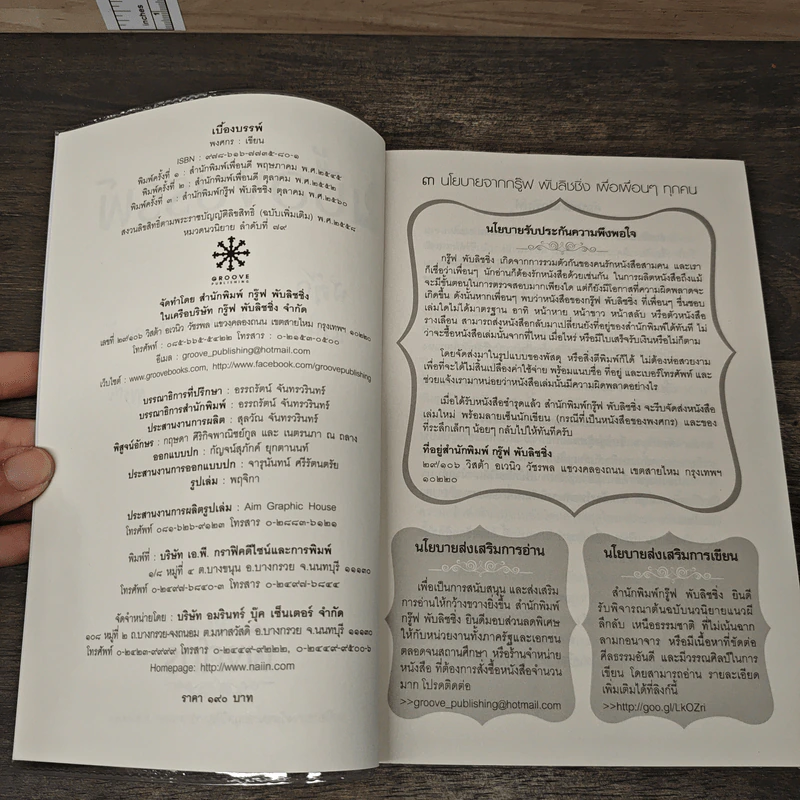 inches
1
เบื้องบรรพ์
พงศกร : เขียน
ISBN : ๙๗๘-๖๑๖-๗๗๓๕-๘๐-๑
พิมพ์ครั้งที่ ๑ : สำนักพิมพ์เพื่อนดี พฤษภาคม พ.ศ.๒๕๔๕
พิมพ์ครั้งที่ ๒ : สำนักพิมพ์เพื่อนดี ตุลาคม พ.ศ.๒๕๕๒
พิมพ์ครั้งที่ ๓ : สำนักพิมพ์กรู๊ฟ พับลิชชิ่ง ตุลาคม พ.ศ.๒๕๖๐
สงวนลิขสิทธิ์ตามพระราชบัญญัติลิขสิทธิ์ (ฉบับเพิ่มเติม) พ.ศ.๒๕๕๘
หมวดนวนิยาย ลำดับที่ ๗๙
GROOVE
PUBLISHING
จัดทำโดย สำนักพิมพ์ กรู๊ฟ พับลิชชิ่ง
ในเครือบริษัท กรู๊ฟ พับลิชชิ่ง จำกัด
เลขที่ ๒๙/๑๐๖ วิสต้า อเวนิว วัชรพล แขวงคลองถนน เขตสายไหม กรุงเทพฯ ๑๐๒๒๐
โทรศัพท์ : ๐๘๕-๖๖๕-๕๔๒๒ โทรสาร : ๐-๒๑๕๓-๐๕๐๐
อีเมล : groove_publishing@hotmail.com
เว็บไซต์ : www.groovebooks.com, http://www.facebook.com/groovepublishing
บรรณาธิการที่ปรึกษา : อรรถรัตน์ จันทรวรินทร์
บรรณาธิการสำนักพิมพ์ : อรรถรัตน์ จันทรวรินทร์
ประสานงานการผลิต : สุลวัณ จันทรวรินทร์
พิสูจน์อักษร : กฤษดา ศิริกิจพาณิชย์กูล และ เนตรนภา ณ ถลาง
ออกแบบปก : กัญจน์สุภัคค์ ยุกตานนท์
ประสานงานการออกแบบปก : จารุนันทน์ ศรีรัตนตรัย
รูปเล่ม : พฤจิกา
ประสานงานการผลิตรูปเล่ม : Aim Graphic House
โทรศัพท์ ๐๘๑-๖๒๖-๙๑๒๓ โทรสาร ๐-๒๘๘๓-๖๑๒๑
พิมพ์ที่ : บริษัท เอ.พี. กราฟิคดีไซน์และการพิมพ์
๑/๘ หมู่ที่ ๔ ต.บางขนุน อ.บางกรวย จ.นนทบุรี ๑๑๑๓๐
โทรศัพท์ ๐-๒๔๙๗-๖๘๔๐-๓ โทรสาร ๐-๒๔๙๗-๖๘๔๔
จัดจำหน่ายโดย : บริษัท อมรินทร์ บุ๊ค เซ็นเตอร์ จำกัด
๑๐๘ หมู่ที่ ๒ ถ.บางกรวย-จงถนอม ต.มหาสวัสดิ์ อ.บางกรวย จ.นนทบุรี ๑๑๑๓๐
โทรศัพท์ ๐-๒๔๒๓-๙๙๙๙ โทรสาร ๐-๒๔๔๙-๙๒๒๒, ๐-๒๔๔๙-๙๕๐๐-๖
Homepage: http://www.naiin.com
ราคา ๑๙๐ บาท
๓ นโยบายจากกรู๊ฟ พับลิชชิ่ง เพื่อเพื่อนๆ ทุกคน
นโยบายรับประกันความพึงพอใจ
กรู๊ฟ พับลิชชิ่ง เกิดจากการรวมตัวกันของคนรักหนังสือสามคน และเรา
ก็เชื่อว่าเพื่อนๆ นักอ่านก็ต้องรักหนังสือด้วยเช่นกัน ในการผลิตหนังสือถึงแม้
จะมีขั้นตอนในการตรวจสอบมากเพียงใด แต่ก็ยังมีโอกาสที่ความผิดพลาดจะ
เกิดขึ้น ดังนั้นหากเพื่อนๆ พบว่าหนังสือของกรู๊ฟ พับลิชชิ่ง ที่เพื่อนๆ ชื่นชอบ
เล่มใดไม่ได้มาตรฐาน อาทิ หน้าหาย หน้าขาว หน้าสลับ หรือตัวหนังสือ
รางเลือน สามารถส่งหนังสือกลับมาเปลี่ยนยังที่อยู่ของสำนักพิมพ์ได้ทันที ไม่
ว่าจะซื้อหนังสือเล่มนั้นจากที่ไหน เมื่อไหร่ หรือมีใบเสร็จรับเงินหรือไม่ก็ตาม
โดยจัดส่งมาในรูปแบบของพัสดุ หรือสิ่งตีพิมพ์ก็ได้ ไม่ต้องห่อสวยงาม
เพื่อที่จะได้ไม่สิ้นเปลืองค่าใช้จ่าย พร้อมแนบชื่อ ที่อยู่ และเบอร์โทรศัพท์ และ
ช่วยแจ้งเรามาหน่อยว่าหนังสือเล่มนั้นมีความผิดพลาดอย่างไร
เมื่อได้รับหนังสือชำรุดแล้ว สำนักพิมพ์กรู๊ฟ พับลิชชิ่ง จะรีบจัดส่งหนังสือ
เล่มใหม่ พร้อมลายเซ็นนักเขียน (กรณีที่เป็นหนังสือของพงศกร) และของ
ที่ระลึกเล็กๆ น้อยๆ กลับไปให้ทันทีครับ
ที่อยู่สำนักพิมพ์ กรู๊ฟ พับลิชชิ่ง
๒๙/๑๐๖ วิสต้า อเวนิว วัชรพล แขวงคลองถนน เขตสายไหม กรุงเทพฯ
๑๐๒๒๐
นโยบายส่งเสริมการอ่าน
เพื่อเป็นการสนับสนุน และส่งเสริม
การอ่านให้กว้างขวางยิ่งขึ้น สำนักพิมพ์
กรู๊ฟ พับลิชชิ่ง ยินดีมอบส่วนลดพิเศษ
ให้กับหน่วยงานทั้งภาครัฐและเอกชน
ตลอดจนสถานศึกษา หรือร้านจำหน่าย
หนังสือ ที่ต้องการสั่งซื้อหนังสือจำนวน
มาก โปรดติดต่อ
>>groove_publishing@hotmail.com
นโยบายส่งเสริมการเขียน
สำนักพิมพ์กรู๊ฟ พับลิชชิ่ง ยินดี
รับพิจารณาต้นฉบับนวนิยายแนวผี
ลึกลับ เหนือธรรมชาติ ที่ไม่เน้นฉาก
ลามกอนาจาร หรือมีเนื้อหาที่ขัดต่อ
ศีลธรรมอันดี และมีวรรณศิลป์ในการ
เขียน โดยสามารถอ่าน รายละเอียด
เพิ่มเติมได้ที่ลิงก์นี้
>>http://goo.gl/LkOZri